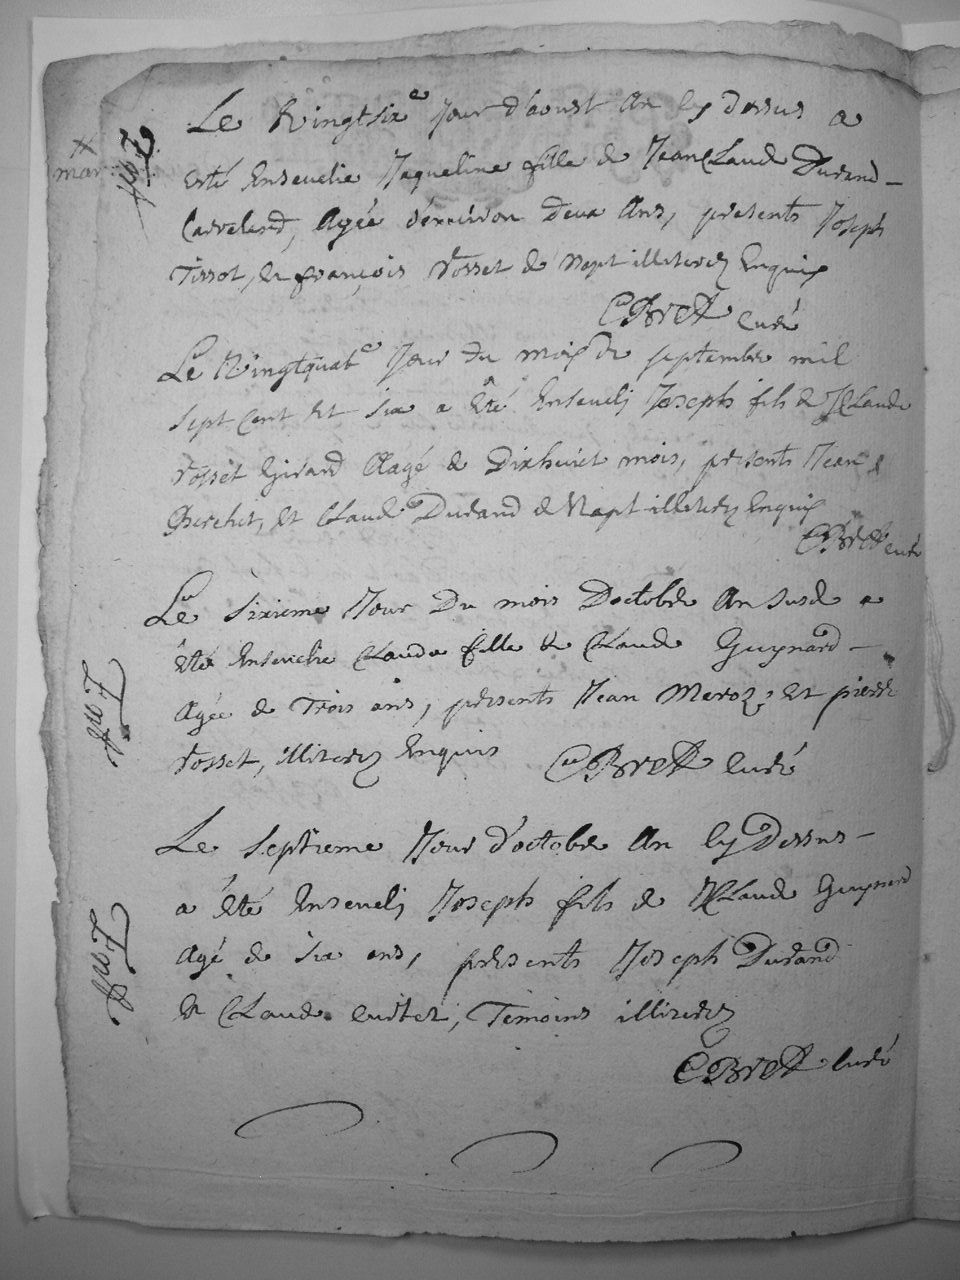 Le Vingtsixe Jour d'aoust an cy dessus a
esté Ensevelie Jaqueline fille de Jean Claude Durand
agée d'environ deux Ans, presents Joseph
Tissot, et françois Vosset de Napt illiterez Enquis
CBrett curé
Le Vingtquate Jour du mois de septembre mil
sept cent et six a été Enseveli Joseph fils de JClaude
Vosset Girard Aagé de Dixhuict mois, presents Jean
Berchet, et Claude Durand de Napt illiterez Enquis
CBrett curé
Le sixieme Jour Du mois Doctobre An susd a
été Ensevelie Clauda fille de Claude Guynard
agée de Trois ans, presents Jean Meroz, et pierre
Vosset, illiterez Enquis CBrett curé
Le septieme Jour d'octobre An cy Dessus
a été Enseveli Joseph fils de JClaude Guynard
Agé de six ans, presents Joseph Durand
et Claude Temoins illiterez
CBrett curé